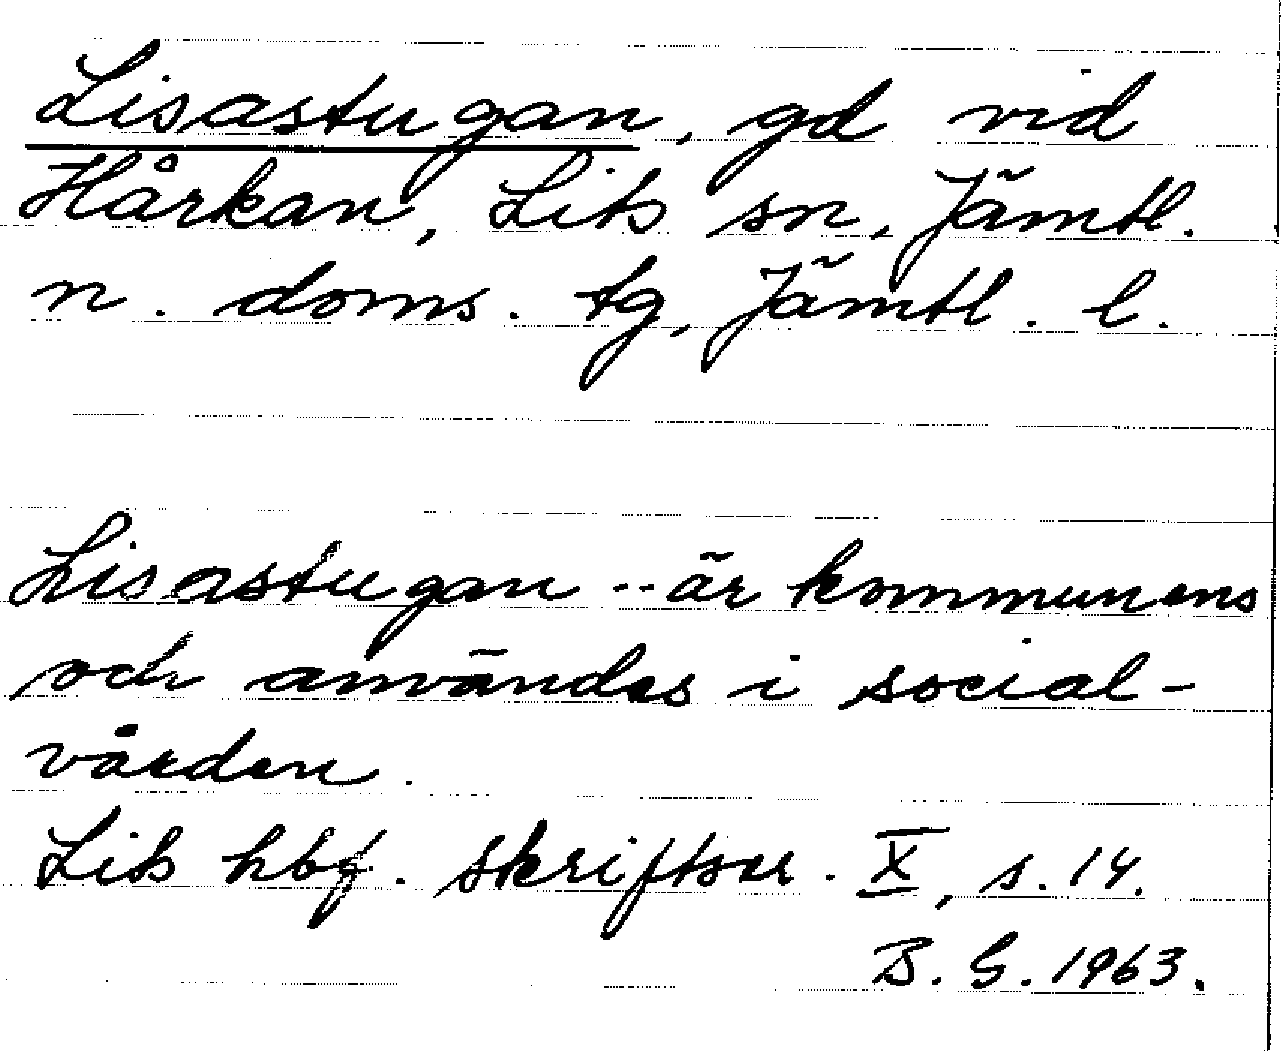 Lisastugan, gd vid
Hårkan, Lits sn, Jämtl.
n. doms. tg, Jämtl. l.
Lisastugan -- är kommunens
och användes i social-
vården.
Lits hbf. skriftser. X, s. 14.
B. G. 1963.